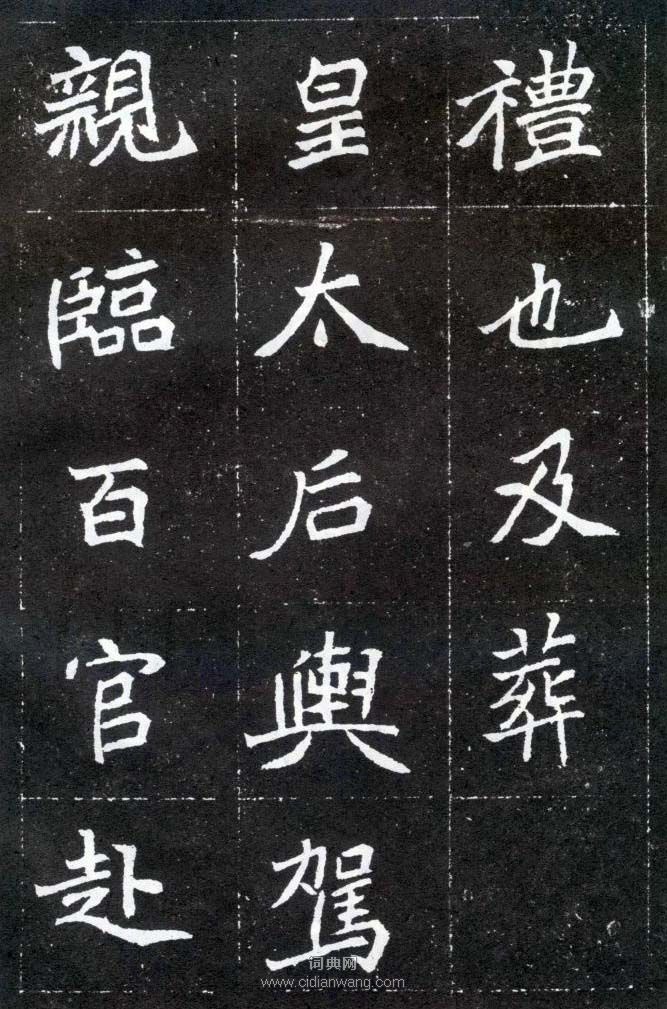 禮也及葬
皇太后輿駕
親臨百官赴
词典网
www.cidianwang.com